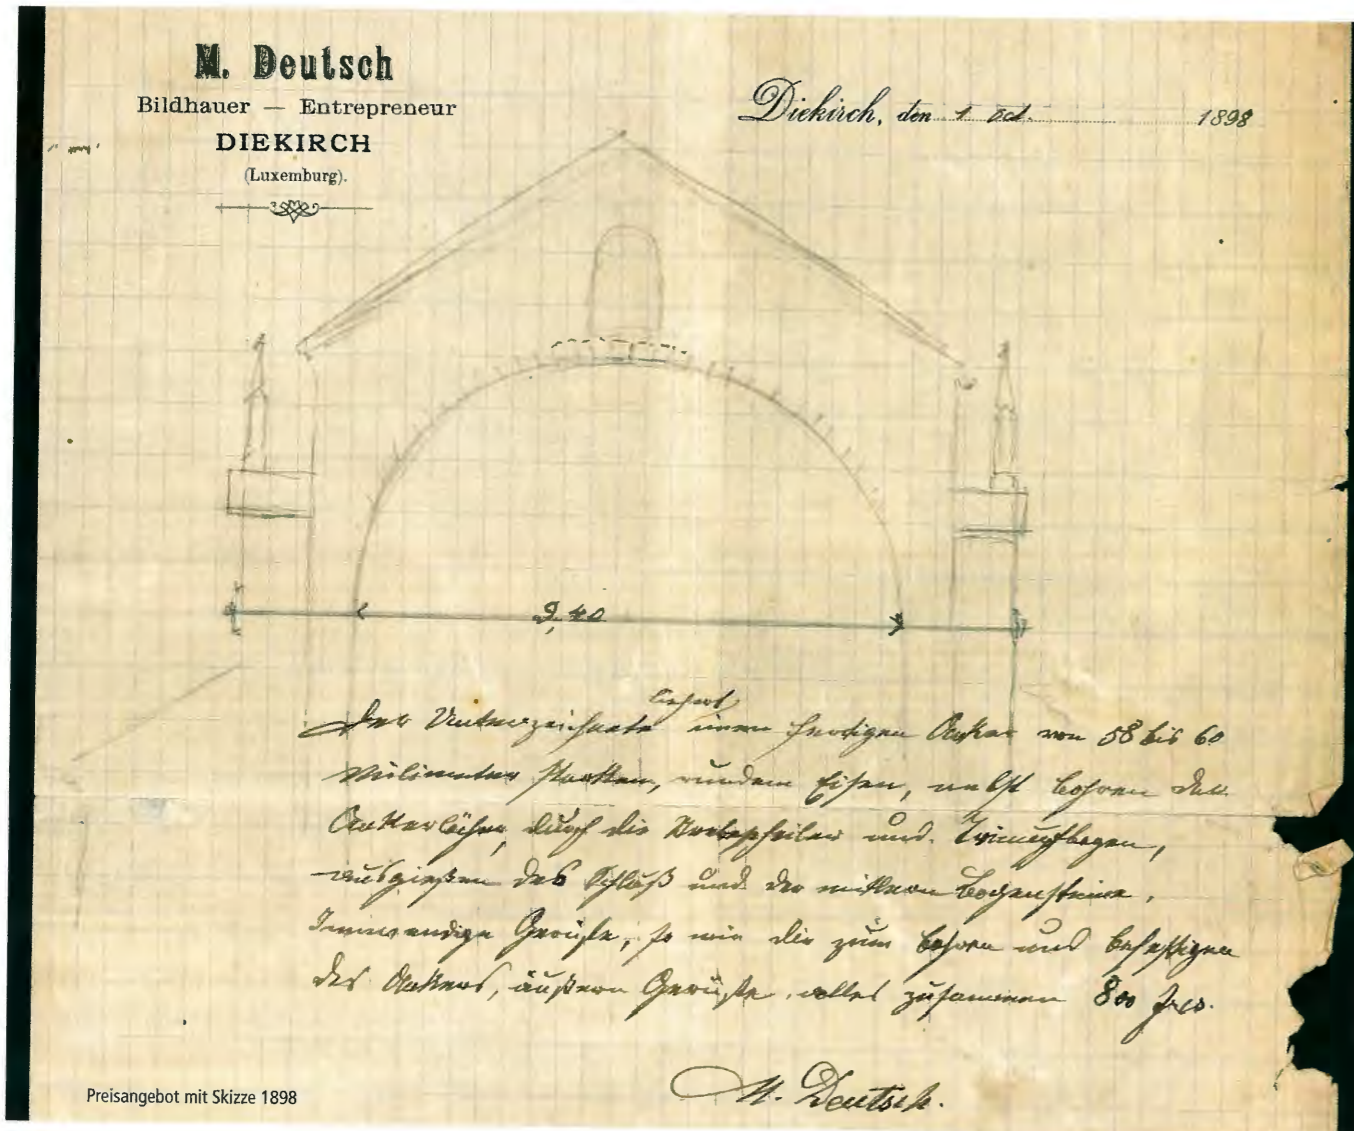 M. Deutsch
Bildhauer — Entrepreneur
DIEKIRCH
(Luxemburg).
Diekirch, den 1 Oct. 1898
9,40
liefert
Der Unterzeichnete einen fertigen Anker von 58 bis 60
Milimeter starken, rundem Eisen, nebst bohren der
Ankerlöcher, durch die Strebepfeiler und Triumpfbogen,
ausgießen des Schluß und der mittlern Bogensteine,
Innwendige Gerüste, so wie die zum bohren und befestigen
des Ankers, äußern Gerüste, alles zusammen 800 Frcs.
M. Deutsch.
Preisangebot mit Skizze 1898